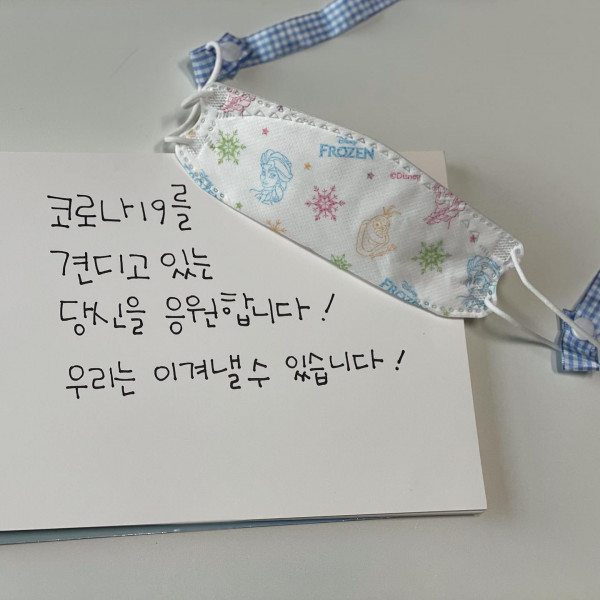 코로나19를
견디고 있는
당신을 응원합니다!
우리는 이겨낼 수 있습니다!
Disney
FROZEN
©Disney
FROZEN